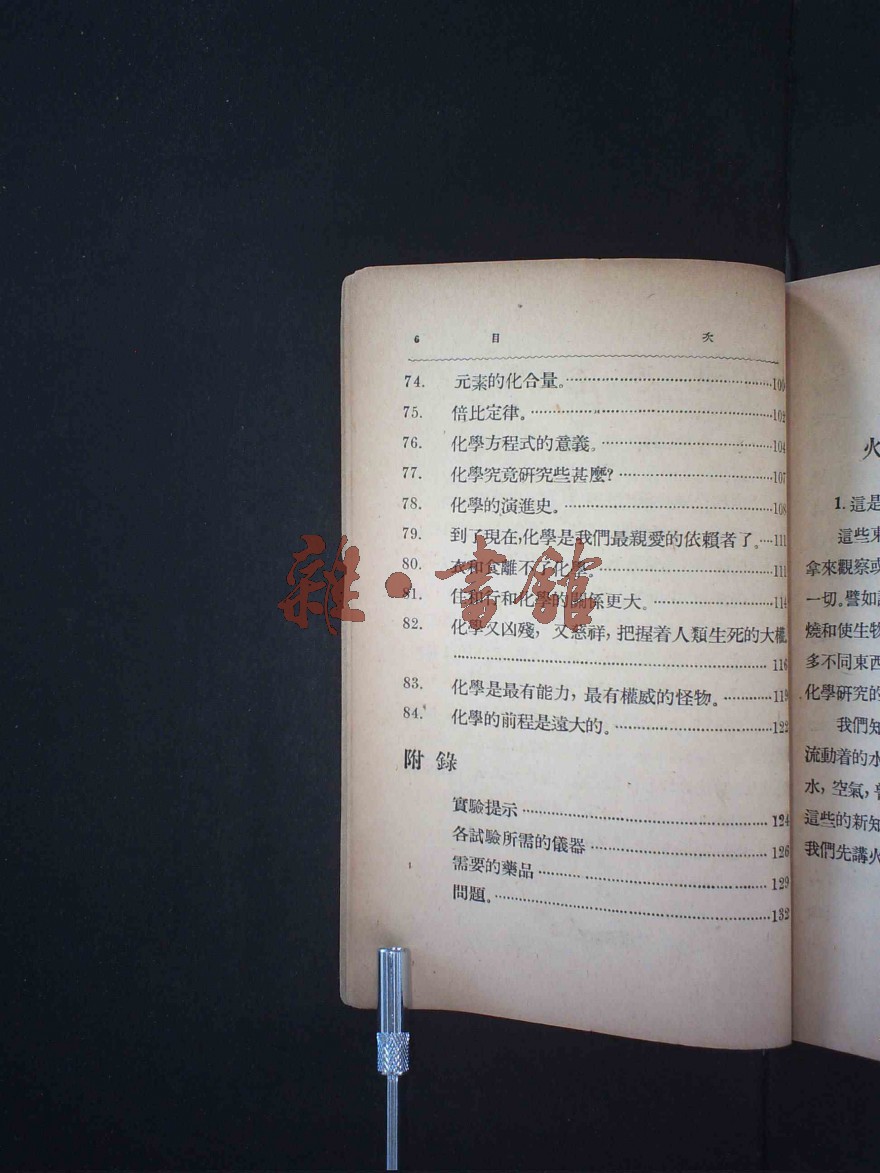 6 目 次
74. 元素的化合量。……100
75. 倍比定律。……102
76. 化學方程式的意義。……104
77. 化學究竟研究些甚麼?……107
78. 化學的演進史。……108
79. 到了現在,化學是我們最親愛的依賴者了。…111
80. 衣和食離不了化學。……111
81. 住和行和化學的關係更大。……114
82. 化學又凶殘,又慈祥,把握着人類生死的大權
……116
83. 化學是最有能力,最有權威的怪物。……119
84. 化學的前程是遠大的。……122
附 錄
實驗提示……124
各試驗所需的儀器……126
需要的藥品……129
問題。……132
雜·書館
火
1. 這是
這些東
拿來觀察或
一切。譬如
燒和使生物
多不同東西
化學研究的
我們知
流動着的水
水,空氣,
這些的新知
我們先講火